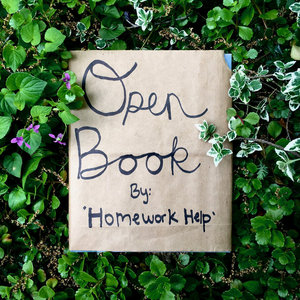 Open
Book
By:
"Homework Help"